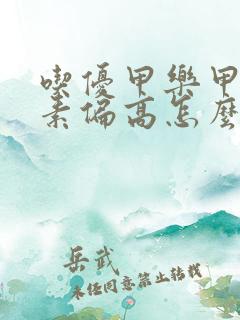 喫優甲樂甲
素偏高怎麼
岳武
未经同意禁止转载